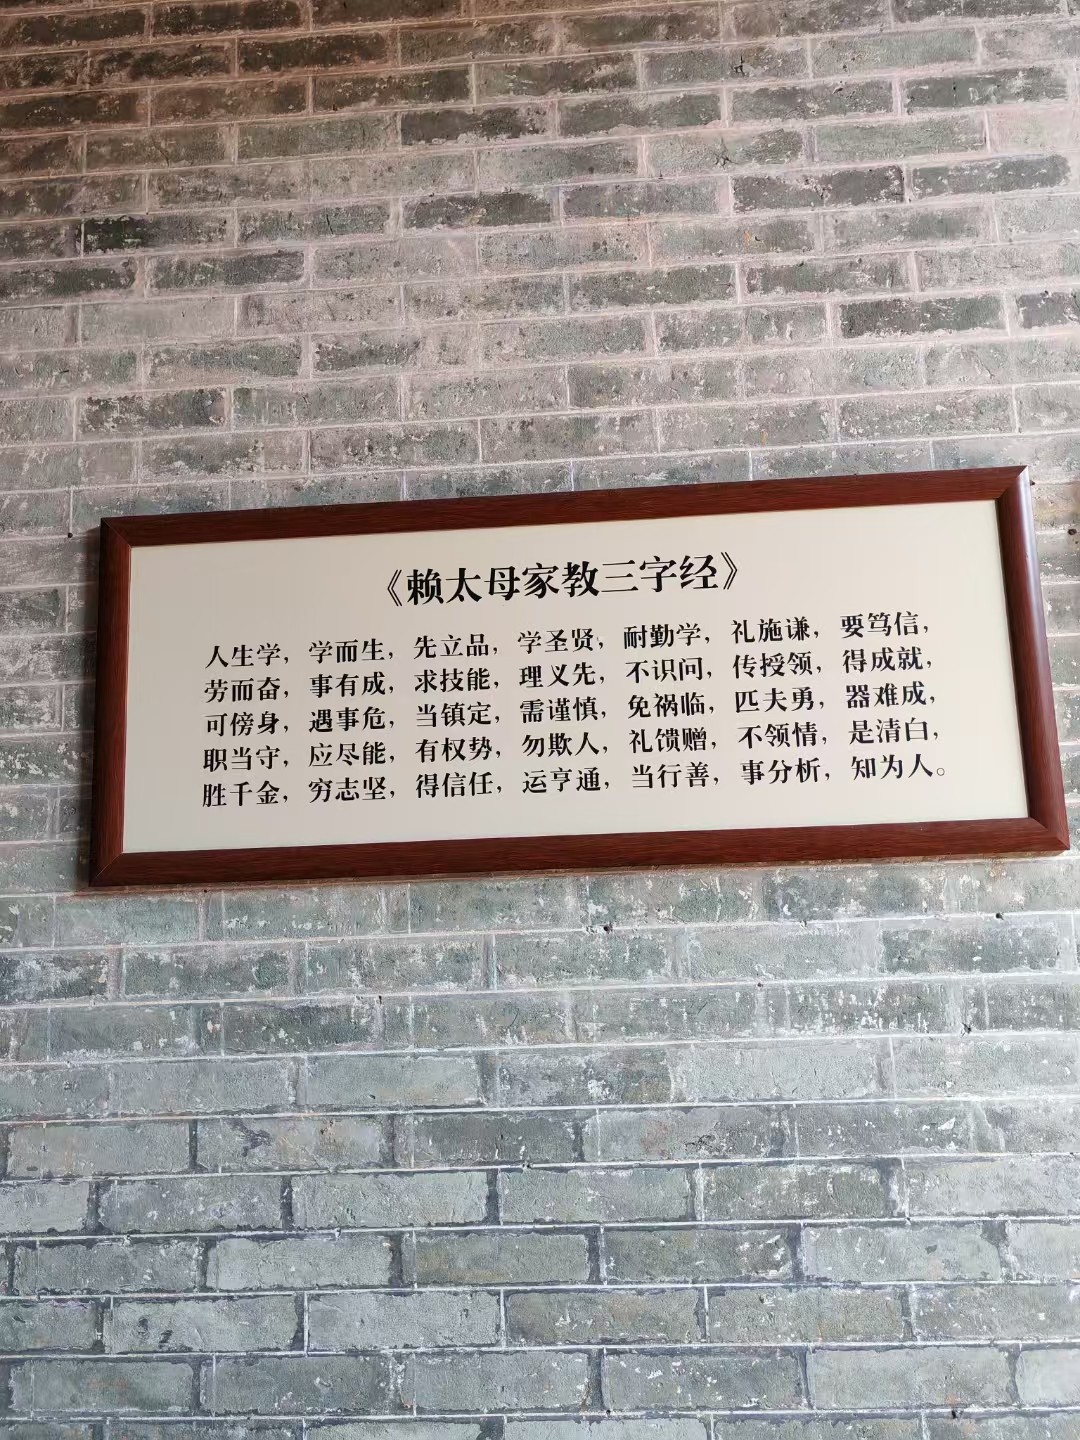 《赖太母家教三字经》
人生学，学而生，先立品，学圣贤，耐勤学，礼施谦，要笃信，
劳而奋，事有成，求技能，理义先，不识问，传授领，得成就，
可傍身，遇事危，当镇定，需谨慎，免祸临，匹夫勇，器难成，
职当守，应尽能，有权势，勿欺人，礼馈赠，不领情，是清白，
胜千金，穷志坚，得信任，运亨通，当行善，事分析，知为人。